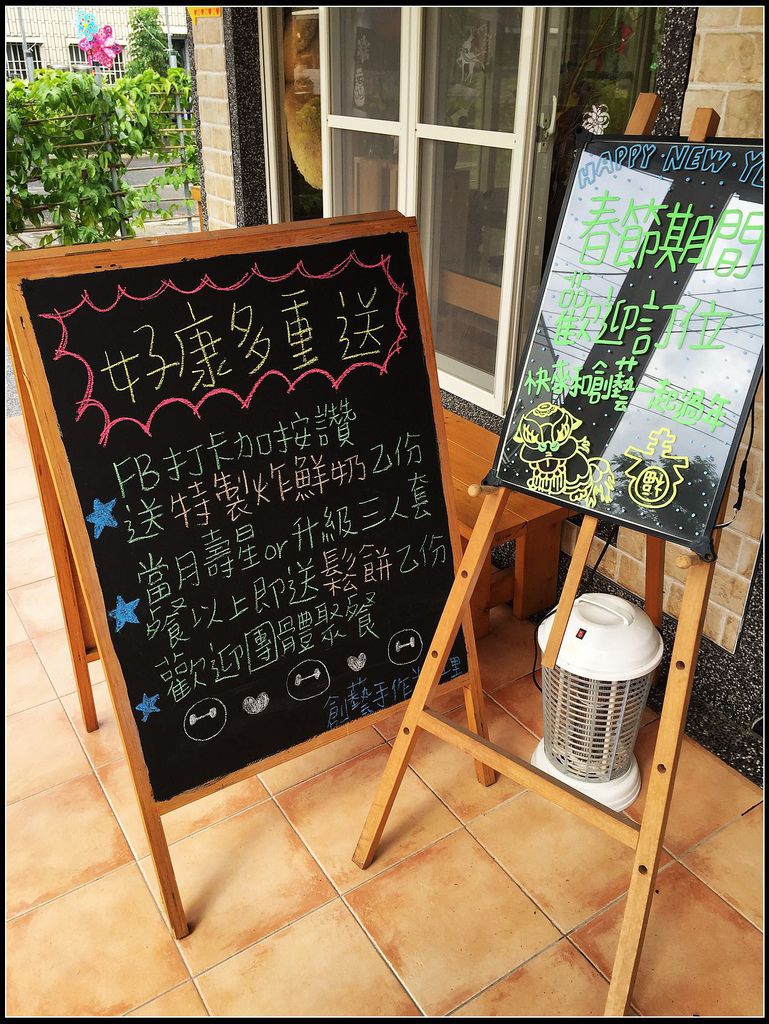 好康多重送
FB打卡加按讚
送特製炸鮮奶乙份
當月壽星or升級三人套
餐以上即送鬆餅乙份
歡迎團體聚餐
創藝手作
HAPPY NEW YE
春節期間
歡迎訂位
快來和創藝一起過年
福